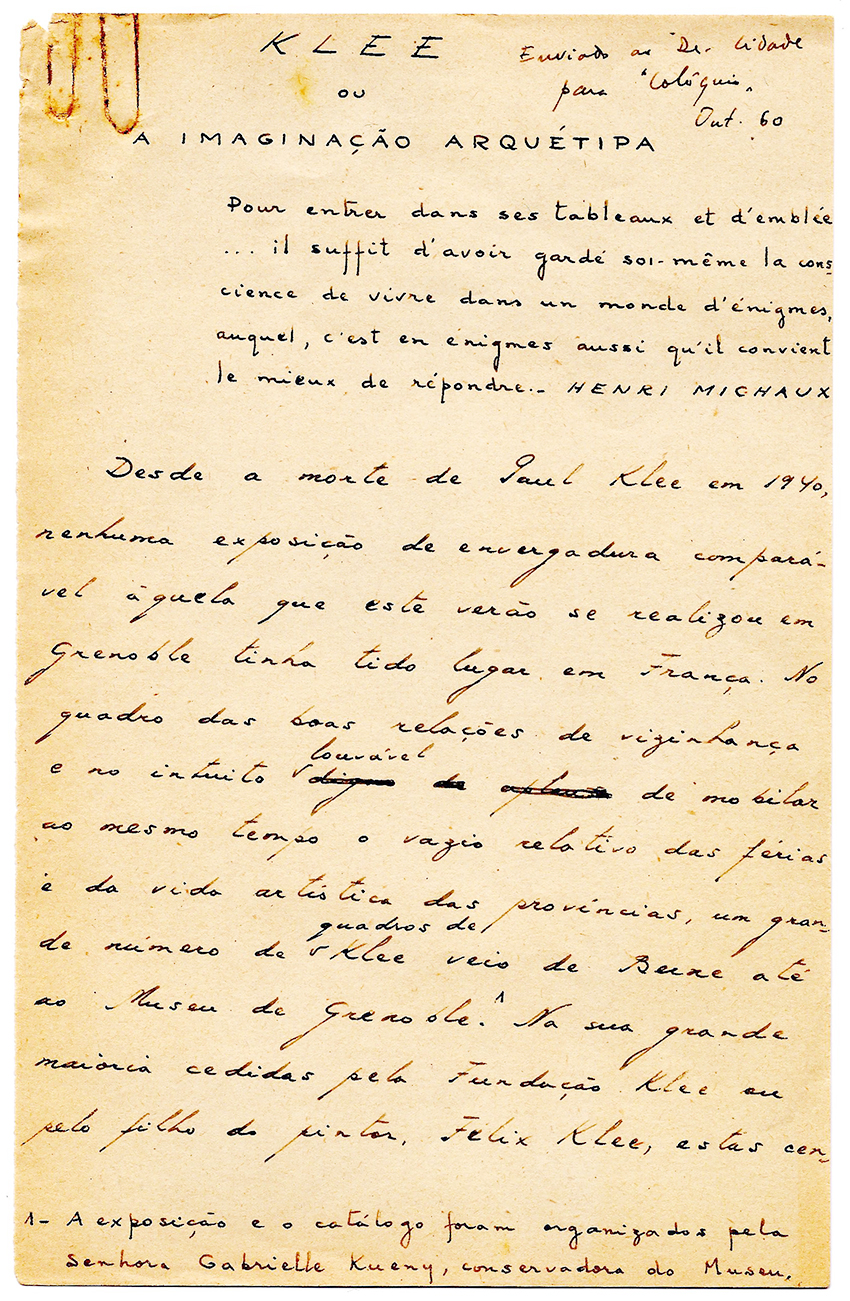 KLEE
Enviado ao Dr. Cidade
para "Colóquio"
Out. 60
OU
A IMAGINAÇÃO ARQUÉTIPA
Pour entrer dans ses tableaux et d'emblée
... il suffit d'avoir gardé soi-même la cons-
cience de vivre dans un monde d'énigmes,
auquel, c'est en énigmes aussi qu'il convient
le mieux de répondre.- HENRI MICHAUX
Desde a morte de Paul Klee em 1940,
nenhuma exposição de envergadura compará-
vel àquela que este verão se realizou em
Grenoble tinha tido lugar em França. No
quadro das boas relações de vizinhança
louvável
e no intuito digno de aplauso de mobilar
ao mesmo tempo o vazio relativo das férias
e da vida artística das províncias, um gran-
quadros de
de número de Klee veio de Berne até
ao Museu de Grenoble.1 Na sua grande
maioria cedidas pela Fundação Klee ou
pelo filho do pintor, Felix Klee, estas cen-
1- A exposição e o catálogo foram organizados pela
Senhora Gabrielle Kueny, conservadora do Museu.